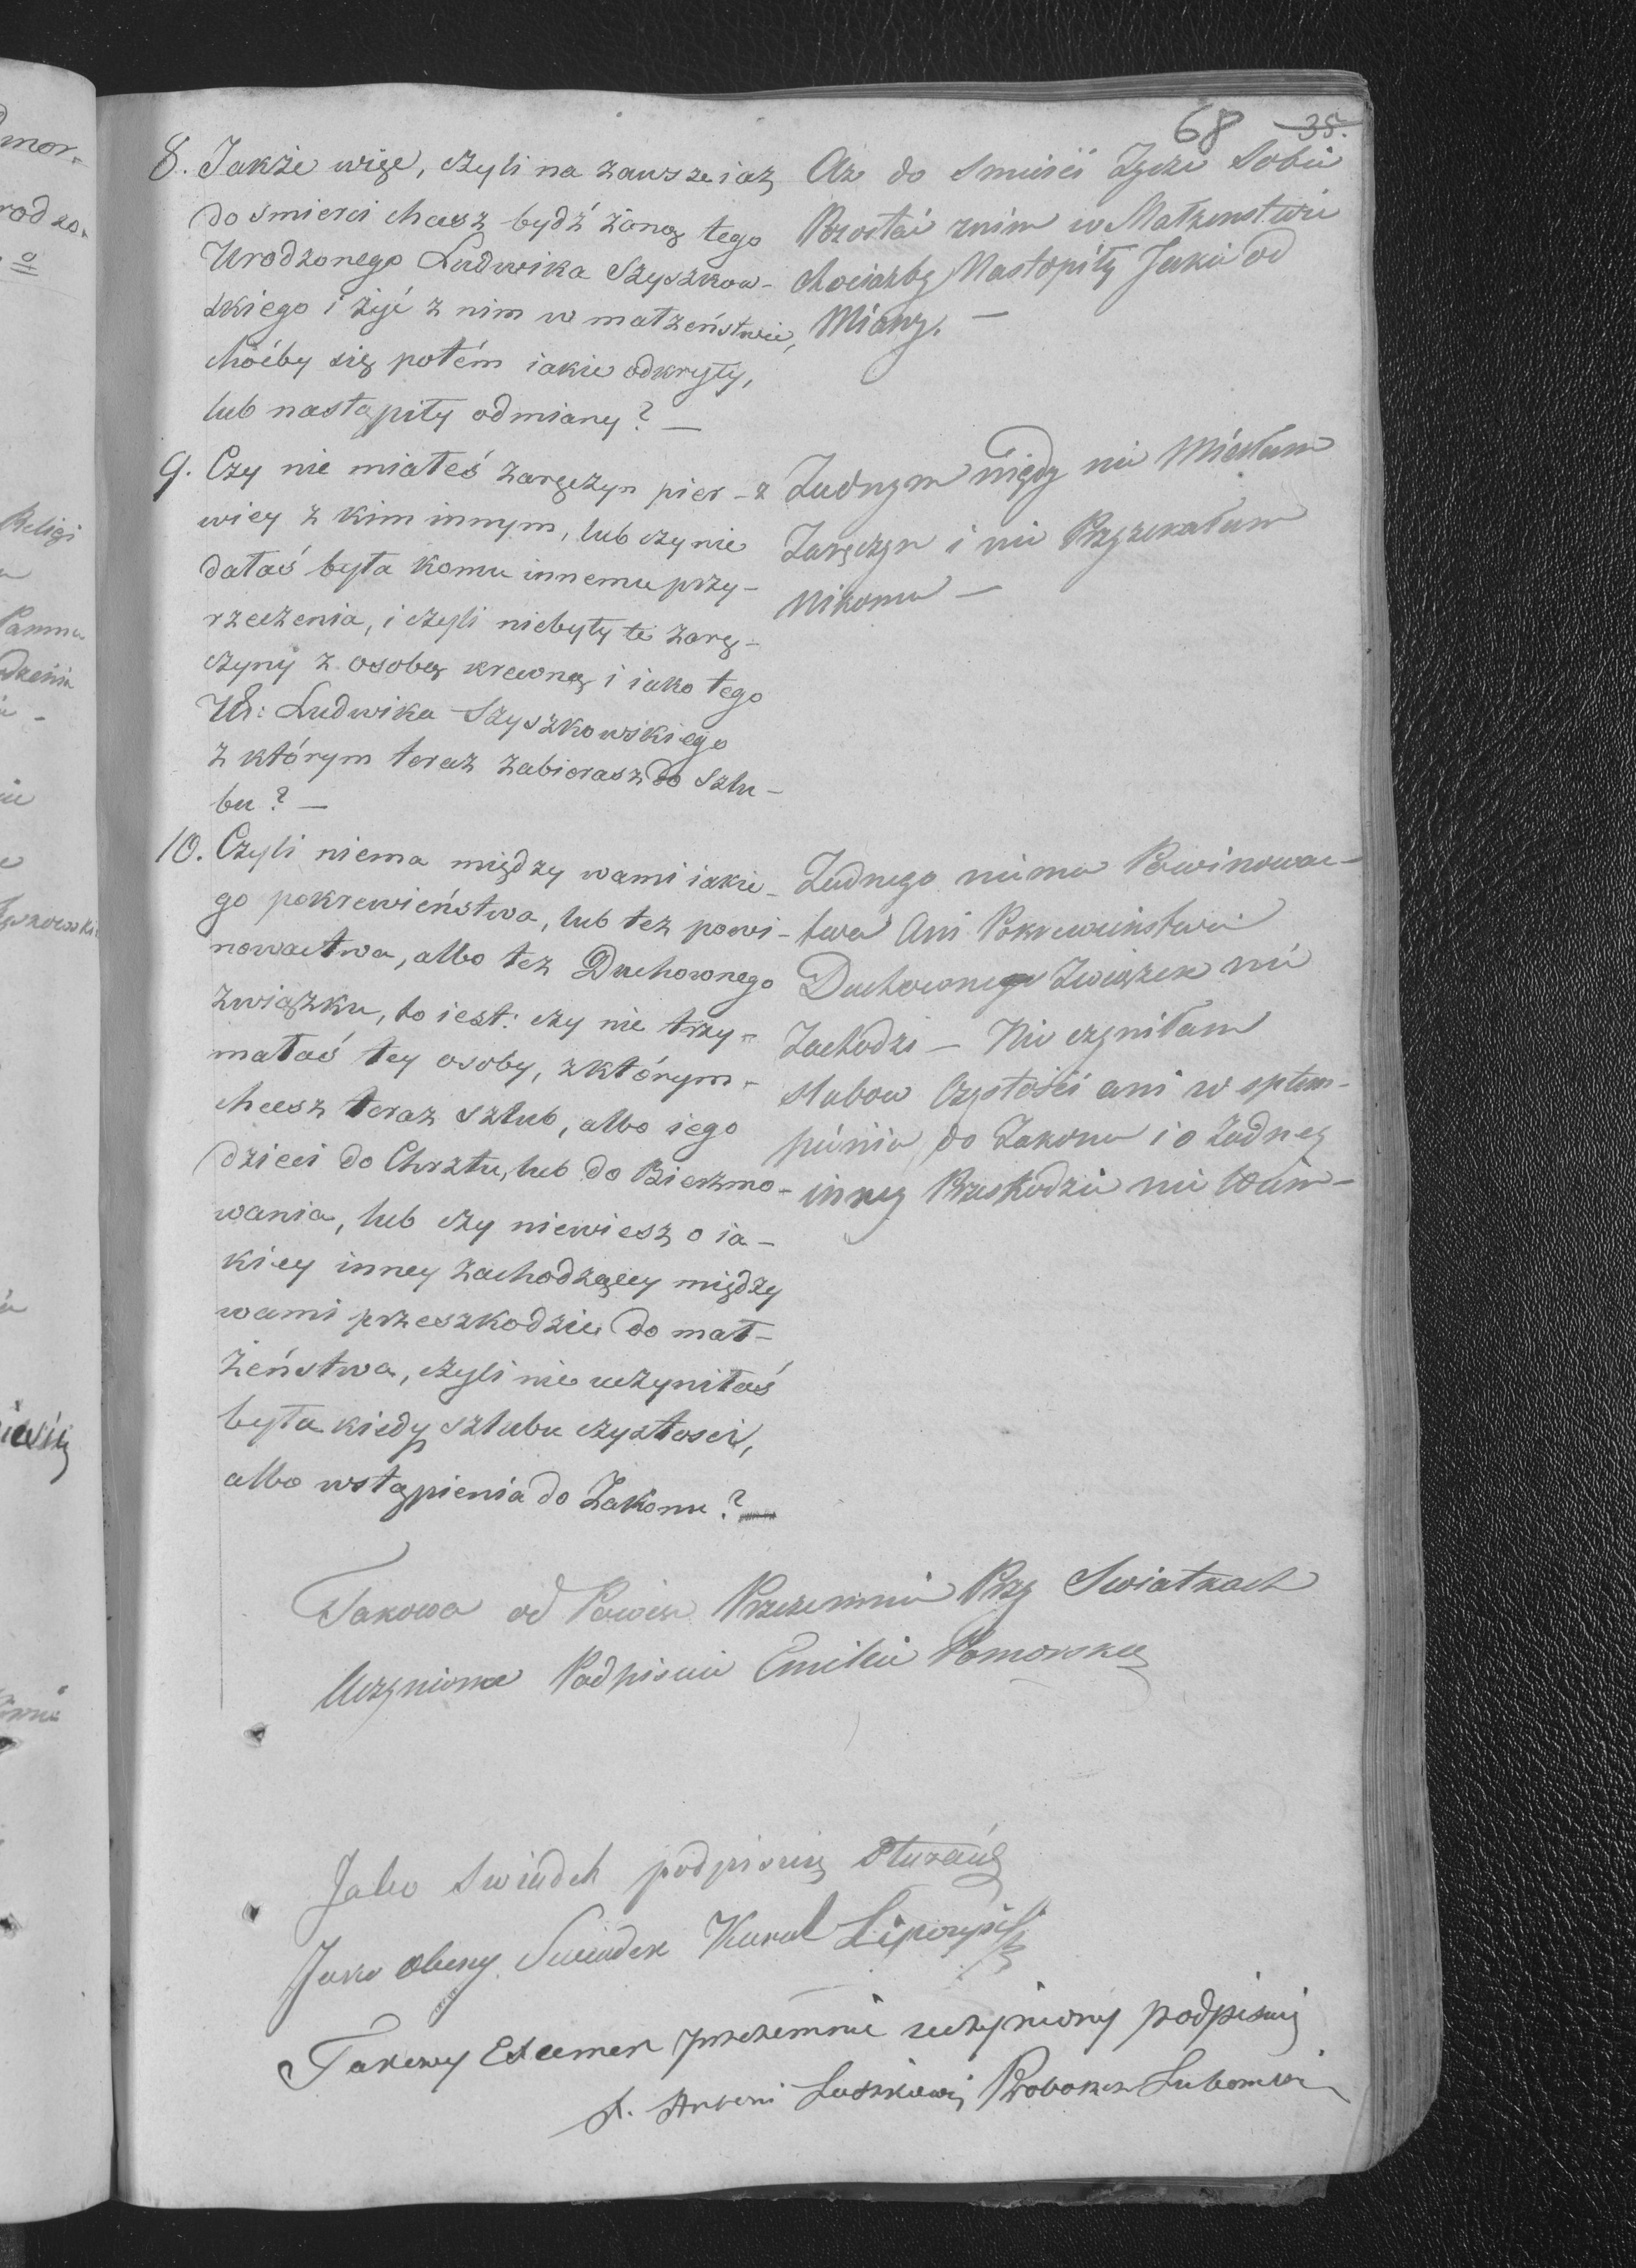 68 35.
8. Jakże więc, czyli na zawsze i aż
do śmierci chcesz bydź żoną tego
Urodzonego Ludwika Szyszkow-
skiego i żyć z nim w małżeństwie,
choćby się potém iakie odkryły,
lub nastąpiły odmiany? —
Aż do Smierci Życze Sobie
Pozostać znim w Małzenstwie
chociazby Nastąpiły Jakie od
Miany. —
9. Czy nie miałeś zaręczyn pier-
wiey z kim innym, lub czy nie
dałaś była komu innemu przy-
rzeczenia, i czyli niebyły te zarę-
czyny z osobą krewną i iako tego
Ur: Ludwika Szyszkowskiego
z którym teraz zabierasz do szlu-
bu? —
z Żadnym nigdy nie Miełam
Zaręczyn i nie Przyrzekałam
Nikomu —
10. Czyli niema między wami iakie-
go pokrewieństwa, lub też powi-
nowactwa, albo też Duchownego
związku, to iest: czy nie trzy-
małaś tey osoby, z którym
chcesz teraz szlub, albo iego
dzieci do Chrztu, lub do Bierzmo-
wania, lub czy niewiesz o ia-
kiey inney zachodzącey między
wami przeszkodzie do mał-
żeństwa, czyli nie uczyniłaś
była kiedy szlubu czystości,
albo wstąpienia do Zakonu? —
Żadnego niema Powinowac-
twa Ani Pokrewienstwa
Duchownego Związek nie
Zachodzi — Nie czyniłam
slubow Czystości ani wsptem-
pienia do Zakonu i o Zadney
inney Przeskodzie nie Wiem —
Takowa od Powiez Przezemnie Przy Swiatkach
Uczyniona Podpisuie Emilia Pomorska
Jako Swiadek podpisuię
Jako obecny Swiadek Karol
Takowy Examen przezemnie uczyniony podpisuię
X. Antoni Proboszcz